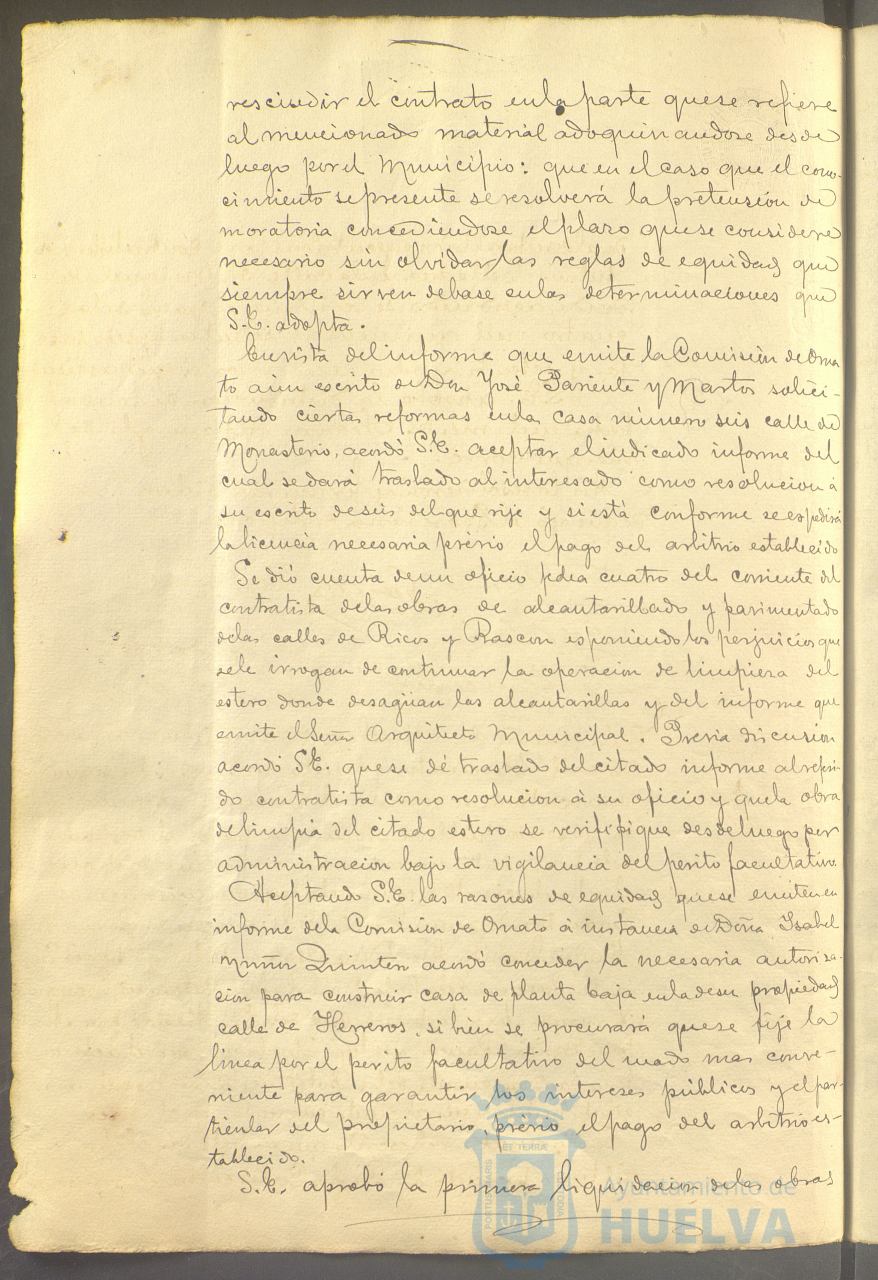 rescindir el contrato en la parte que se refiere
al mencionado material adoquinandose desde
luego por el Municipio: que en el caso que el cono-
cimiento se presente se resolverá la pretensión de
moratoria concediendose el plazo que se considere
necesario sin olvidar las reglas de equidad que
siempre sirven de base en las determinaciones que
S.E. adopta.
En vista del informe que emite la Comisión de Orna
to á un escrito de Don José Pariente y Martos solici-
tando ciertas reformas en la casa número seis calle de
Monasterio, acordó S.E. aceptar el indicado informe del
cual se dará traslado al interesado como resolucion á
su escrito de seis del que rije y si está conforme se espedirá
la licencia necesaria prévio el pago del arbitrio establecido
Se dió cuenta de un oficio fecha cuatro del corriente del
contratista de las obras de alcantarillado y pavimentado
de las calles de Ricos y Rascon esponiendo los perjuicios que
se le irrogan de continuar la operacion de limpieza del
estero donde desagüan las alcantarillas y del informe que
emite el Señor Arquitecto Municipal. Previa discusión
acordó S.E. que se dé traslado del citado informe al referi-
do contratista como resolucion á su oficio y que la obra
de limpia del citado estero se verifique desde luego por
administracion bajo la vigilancia del perito facultativo.
Aceptando S.E. las razones de equidad que se emiten en
informe de la Comision de Ornato á instancia de Doña Isabel
Muñoz acordó conceder la necesaria autoriza-
cion para construir casa de planta baja en la de su propiedad
calle de Herreros, si bien se procurará que se fije la
línea por el perito facultativo del modo mas conve-
niente para garantir los intereses públicos y el par-
ticular del propietario, prévio el pago del arbitrio es-
tablecido.
S.E. aprobó la primera liquidacion de las obras
Ayuntamiento de
HUELVA